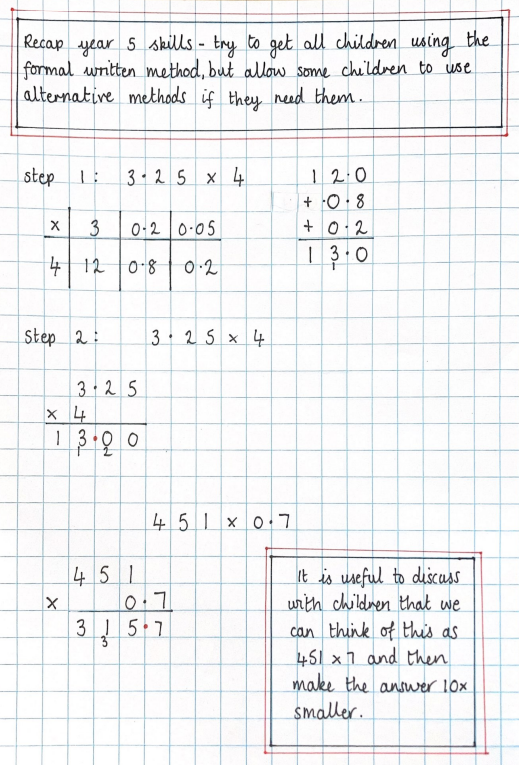 Recap year 5 skills - try to get all children using the
formal written method, but allow some children to use
alternative methods if they need them.
step 1: 3·25 × 4
× 3 0·2 0·05
4 12 0·8 0·2
12·0
+ ·0·8
+ 0·2
13·0
1
step 2: 3·25 × 4
3·25
× 4
13·00
1 2
451 × 0·7
451
× 0·7
315·7
3
It is useful to discuss
with children that we
can think of this as
451 × 7 and then
make the answer 10×
smaller.